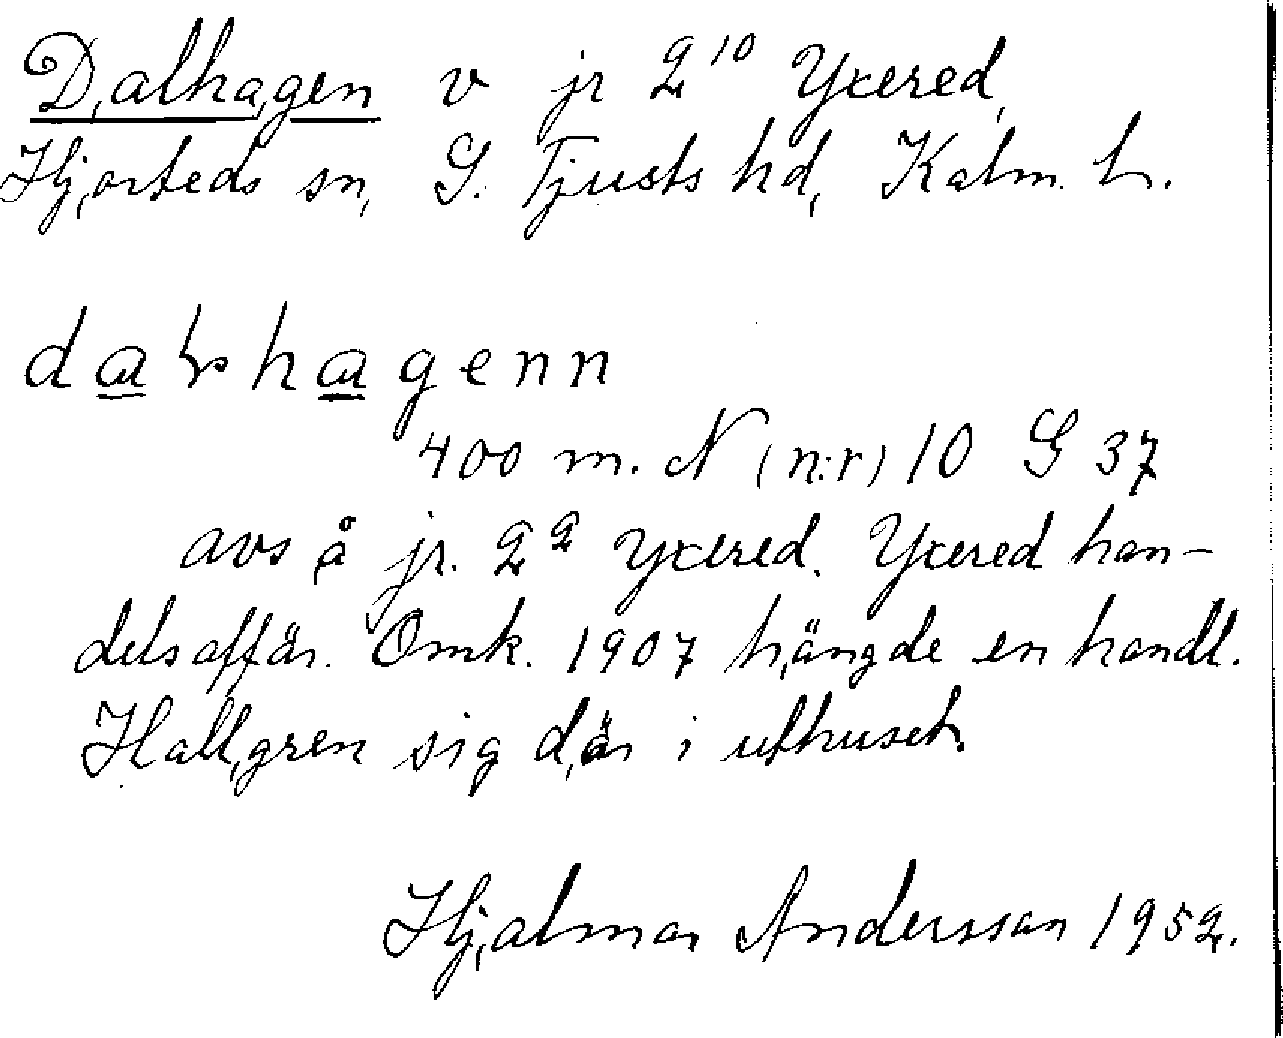 Dalhagen v jr 2¹⁰ Yxered,
Hjorteds sn, S. Tjusts hd, Kalm. l.
dalhagenn
400 m. N (n:r) 10 S 37
avs å jr. 2² Yxered. Yxered han-
delsaffär. Omk. 1907 hängde en handl.
Hallgren sig där i uthuset.
Hjalmar Andersson 1952.